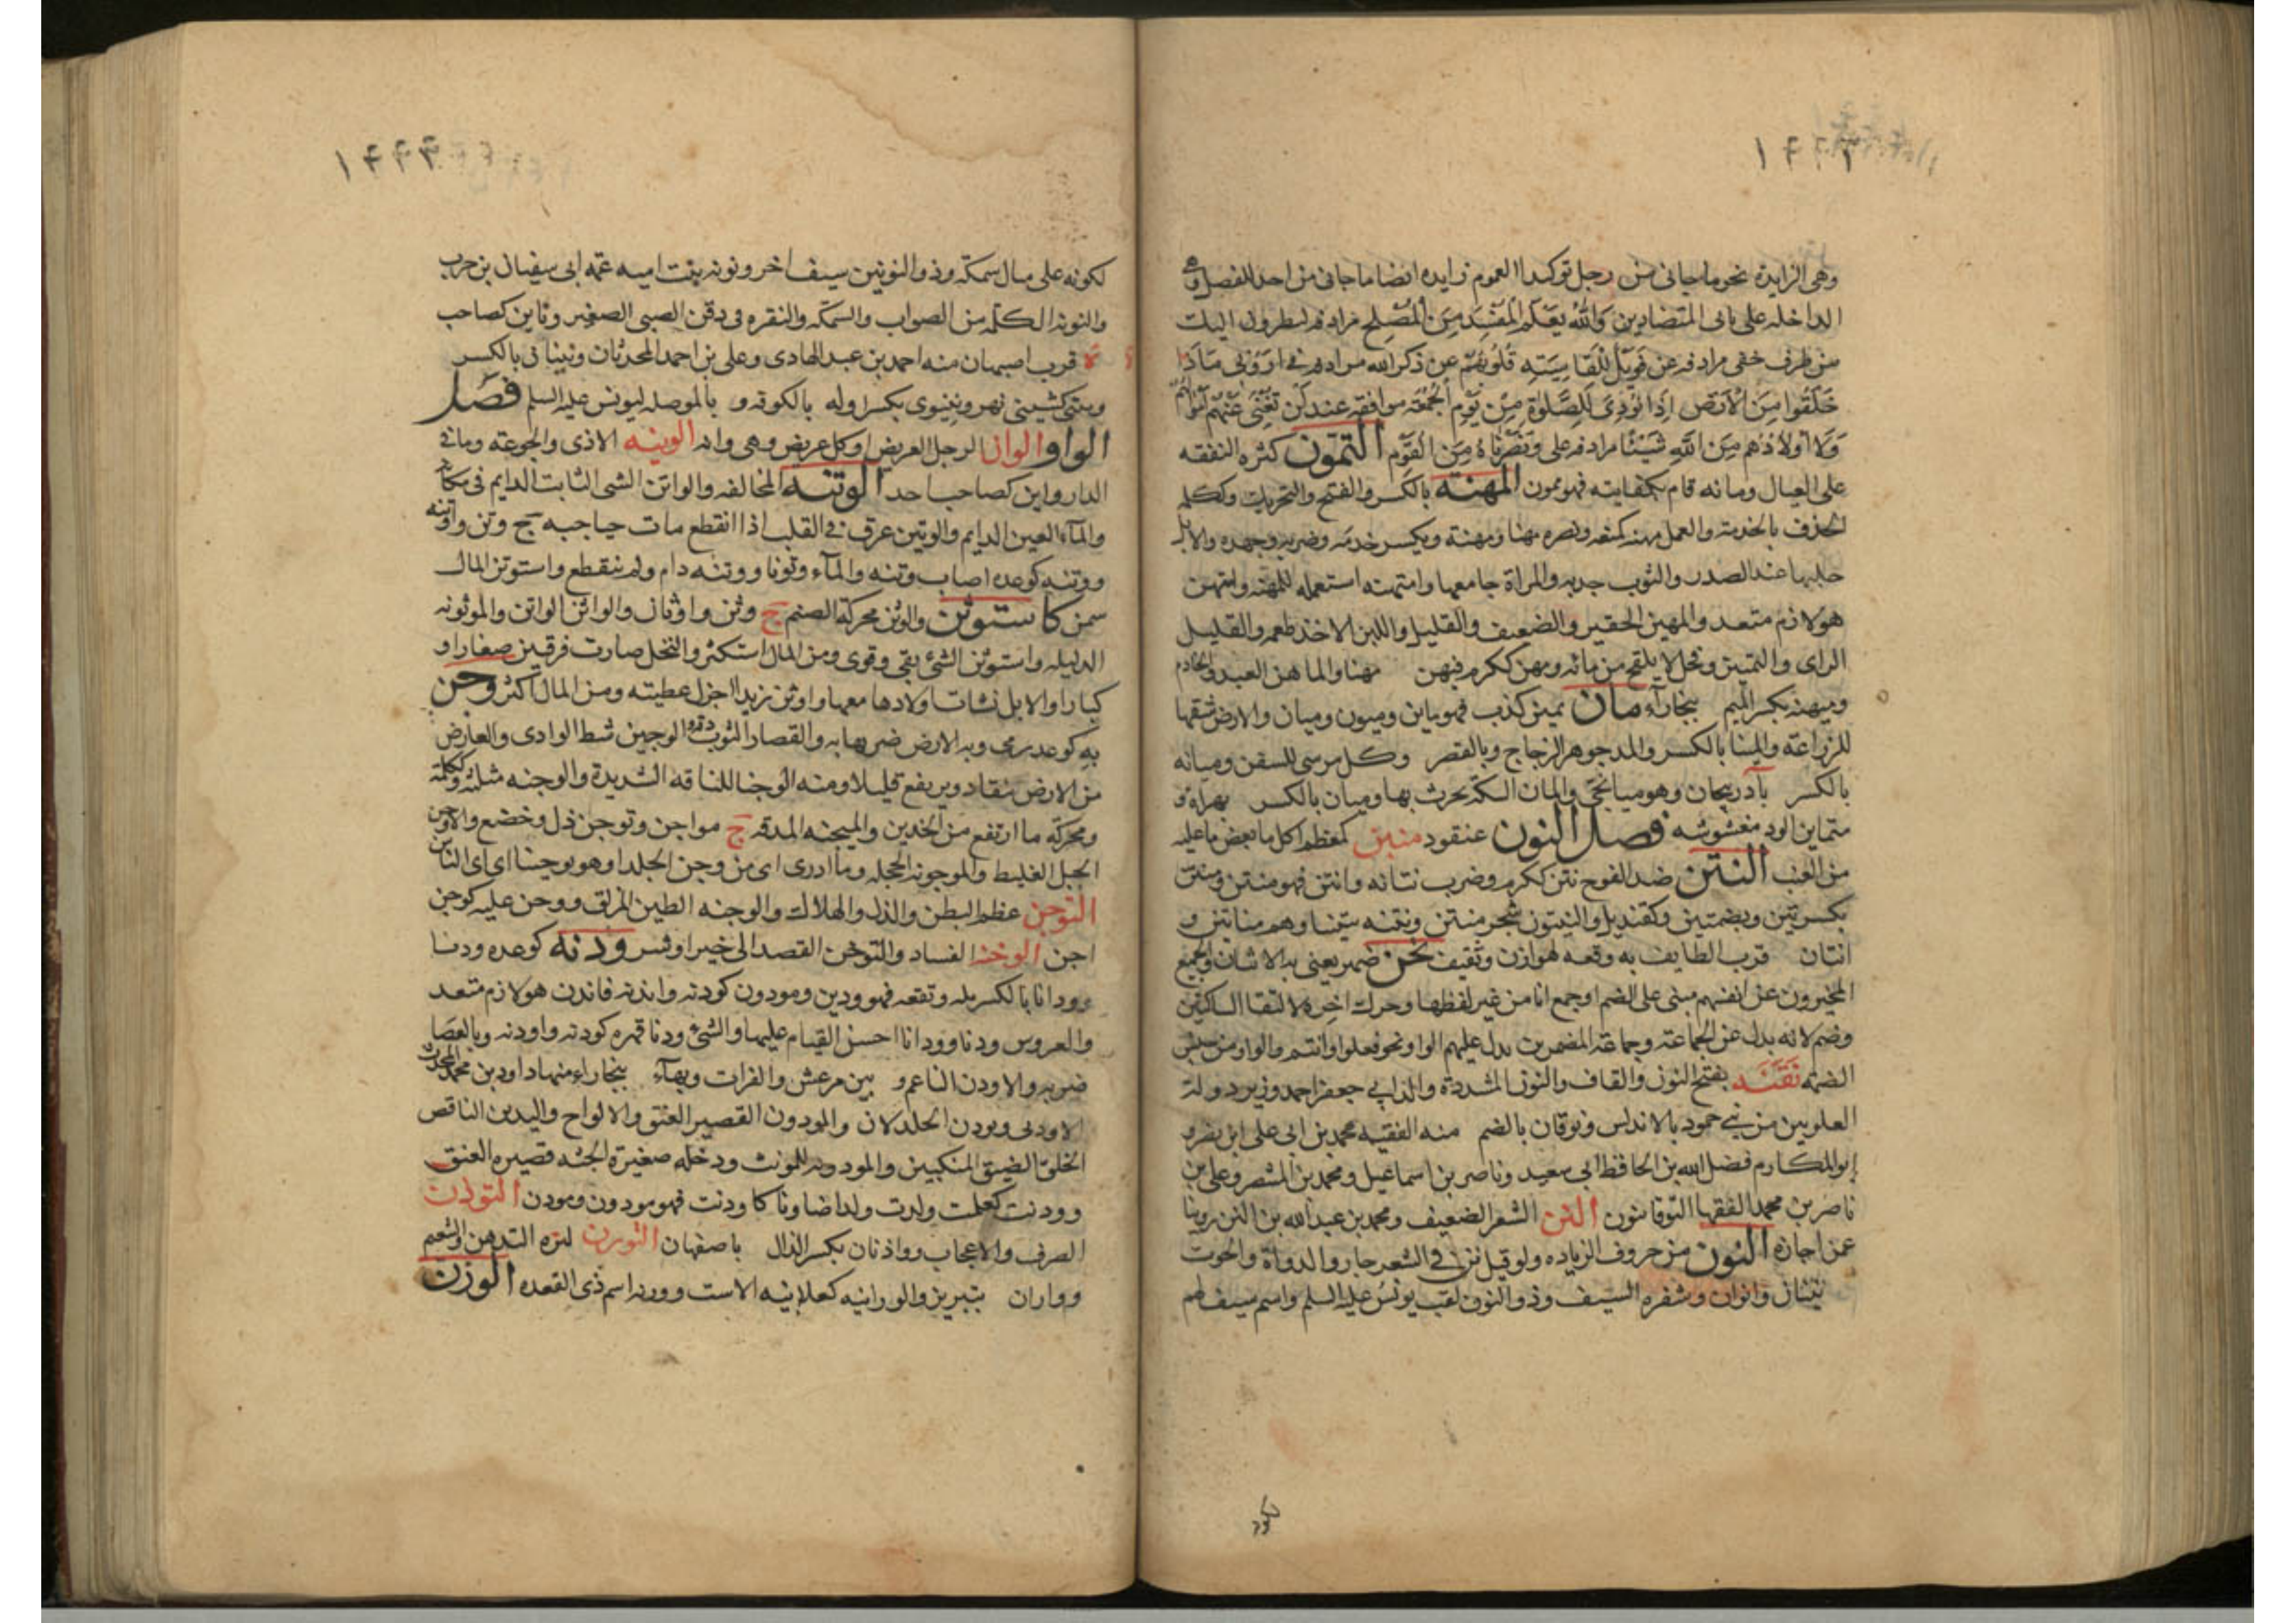 وهى الزايدة نحو ما جانى من رجل توكيد العموم زايده ايضا ما جانى من احد للفصل وهى
الداخلة على ثانى المتضادين وَاللهُ يَعْلَمُ الْمُفْسِدَ مِنَ الْمُصْلِحِ مرادفه
من طرف خفى مرادفه عن فَوَيْلٌ لِلْقَاسِيَةِ قُلُوبُهُمْ عن ذكر الله مرادفه فى اَرُونِى مَاذَا
خَلَقُوا مِنَ الْاَرْضِ اِذَا نُودِىَ لِلصَّلٰوةِ مِنْ يَوْمِ الْجُمُعَةِ موافقه عند لَنْ تُغْنِىَ عَنْهُمْ اَمْوَالُهُمْ
وَلَا اَوْلَادُهُمْ مِنَ اللهِ شَيْئًا مرادفه على وَنَصَرْنَاهُ مِنَ الْقَوْمِ التمون كثره النفقه
على العيال ومانه قام بكفايته فهو ممون المهنه بالكسر والفتح والتحريك وككلمه
الحذق بالخدمة والعمل مهنه كمنعه ونصره مهنا ومهنة ويكسر خدمه وضربه وجهده والابل
حلبها عند الصدر والثوب جذبه والمراة جامعها وامتهنه استعمله للمهنه وامتهن
هو لازم متعد والمهين الحقير والضعيف والقليل واللبن الاخذ طعمه والقليل
الراى والتمييز وفحل لا يلقح من مائه ومهن ككرم فيهن مهنا والماهن العبد والخادم
وميهنه بكسر الميم بنجاراء مان يمين كذب فهو ماين وميون وميان والارض شقها
للزراعة والمينا بالكسر والمد جوهر الزجاج وبالقصر وكل مرسى للسفن وميانه
بالكسر بآذربيجان وهو ميانجى والمان السكة يحرث بها وميان بالكسر بهراة و
متماين الود مغشوشه فصل النون عنقود منبن كمعظم اكل ما بعض ما عليه
من العنب النتن ضد الفوح نتن ككرم وضرب نتانه وانتن فهو منتن ومنتن
بكسرتين وبضمتين وكقنديل والنيتون شجر منتن ونتنه تنتينا وهم مناتين و
انتان قرب الطايف به وقعه لهوازن وثقيف نحن ضمير يعنى به الاثنان والجميع
المخبرون عن انفسهم مبنى على الضم او جمع انا من غير لفظها وحرك اخره لالتقا الساكنين
وضم لانه يدل عن الجماعة وجماعة المضمرين يدل عليهم الواو نحو فعلوا وانتم والواو من جنس
الضمة نَقَنَّه بفتح النون والقاف والنون المشددة والد ابى جعفر احمد وزير دولة
العلويين من بنى حمود بالاندلس ونوقان بالضم منه الفقيه محمد بن ابى على ابن نصر و
ابو المكارم فضل الله بن الحافظ ابى سعيد وناصر بن اسماعيل ومحمد بن المنتصر وعلى بن
ناصر بن محمد الفقها النوقانيون النن الشعر الضعيف ومحمد بن عبد الله بن النن روينا
عمن اجازه النون من حروف الزياده ولو قيل نن فى الشعر جاز والدواة والحوت
نينان وانوان وشفره السيف وذو النون لقب يونس عليه السلم واسم سيف لهم
لكونه على مثال سمكه وذو النونين سيف اخر ونونه بنت اميه عمه ابى سفيان بن حرب
والنونه الكلمه من الصواب والسمكه والنقره فى ذقن الصبى الصغير وناين كصاحب
قرب اصبهان منه احمد بن عبد الهادى وعلى بن احمد المحدثان ونينا فى بالكسر
ونينى كشينى نهر ونينوى بكسر اوله بالكوفه و بالموصل ليونس عليه السلم فصل
الواو الوان الرجل العريض او كل عريض وهى وانه الوينه الاذى والجوعة وما فى
الدار واين كصاحب احد الوتنه المخالفه والواتن الشى الثابت الدايم فى مكانه
والماء المعين الدايم والوتين عرق فى القلب اذا انقطع مات صاحبه ج وتن واوتنه
ووتنه كوعده اصاب وتينه والماء وتونا ووتنه دام ولم ينقطع واستوتن المال
سمن كاستوثن والوثن محركة الصنم ج وثن واوثان والواثن الواتن والموثونه
الذليله واستوثن الشئ بقى وقوى ومن المال استكثر والنخل صارت فرقين صغارا و
كبارا والابل نشات اولادها معها واوثن زيدا اجزل عطيته ومن المال اكثر وجن
به كوعد رمى وبه الارض ضربها به والقصار الثوب دقه والوجين شط الوادى والعارض
من الارض ينقاد ويرتفع قليلا ومنه الوجنا للناقه الشديدة والوجنه مثلثه وككلمة
ومحركة ما ارتفع من الخدين والميجنه المدقه ج مواجن وتوجن ذل وخضع والاوجن
الجبل الغليظ والموجونه الخجله وما ادرى اى من وجن الجلد هو توجينا اى اى الناس
التوحن عظم البطن والذل والهلاك والوحنه الطين المزلق ووحن عليه كوجن
احن الوخنه الفساد والتوخن القصد الى خير او شر ودنه كوعده ودنا
وودانا بالكسر بله ونقعه فهو ودين ومودون كودنه واتدنه فاتدن هو لازم متعد
والعروس ودنا وودانا احسن القيام عليها والشئ ودنا قصره كودنه واودنه وبالعصا
ضربه والاودن الناعم و بين مرعش والفرات وبهاء بنجاراء منها داود بن محمد المحدث
الاودنى وبودن والمودون القصير العنق والالواح واليدين الناقص
الخلق الضيق المنكبين والمودونه للمونث ودخله صغيرة الجثه قصيره العنق
وودنت كعلمت ولدت ولدا ضاويا كاودنت فهو مودون ومودن التوذن
الصرف والاعجاب وواذنان بكسر الذال باصفهان التورن كثره التدهن والنعيم
وواران بتبريز والورانيه كعلانيه الاست وورنه اسم ذى القعده الوزن